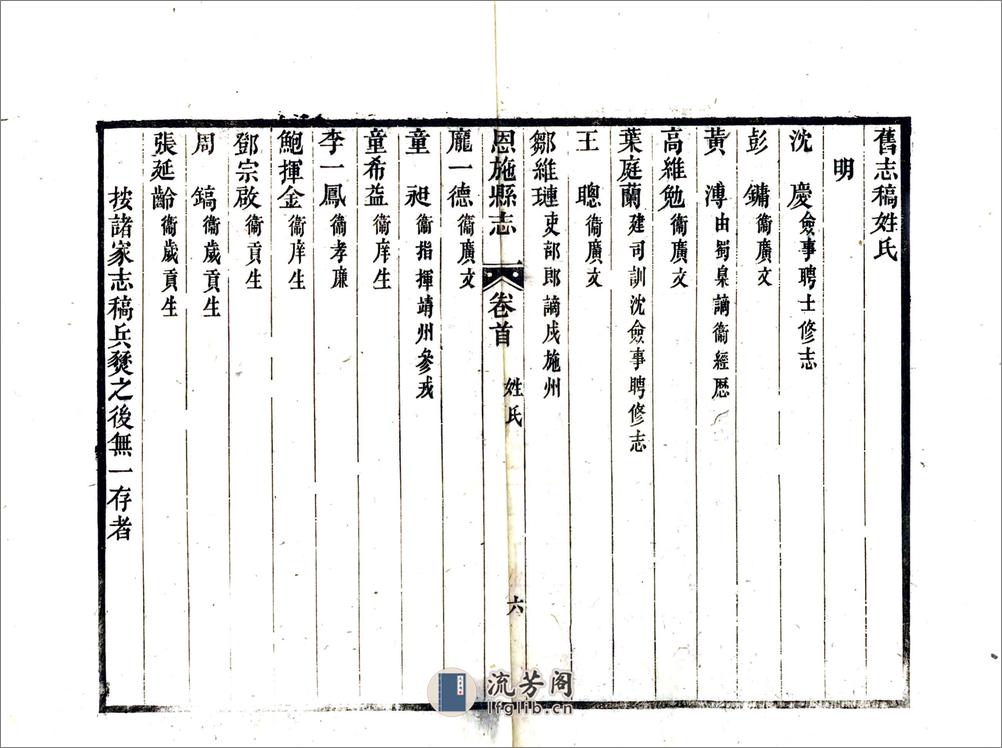 舊志稿姓氏
明
沈　慶 僉事聘士修志
彭　鏞 衞廣文
黃　溥 由蜀臬謫衞經歷
高維勉 衞廣文
葉庭蘭 建司訓沈僉事聘修志
王　聰 衞廣文
鄒維璉 吏部郎謫戍施州
恩施縣志 卷首 姓氏 六
龐一德 衞廣文
童　昶 衞指揮靖州參戎
童希益 衞庠生
李一鳳 衞孝廉
鮑揮金 衞庠生
鄧宗啟 衞貢生
周　鎬 衞歲貢生
張延齡 衞歲貢生
按諸家志稿兵燹之後無一存者
流芳阁
lfglib.cn